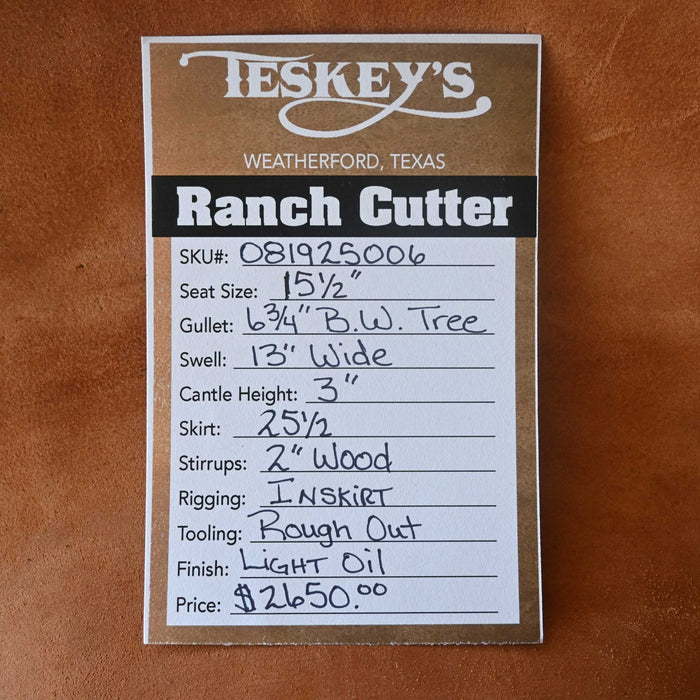 TESKEY'S
WEATHERFORD, TEXAS
Ranch Cutter
SKU#: 081925006
Seat Size: 15½"
Gullet: 6¾" B.W. Tree
Swell: 13" Wide
Cantle Height: 3"
Skirt: 25½
Stirrups: 2" Wood
Rigging: INSKIRT
Tooling: Rough Out
Finish: LIGHT Oil
Price: $2650.00